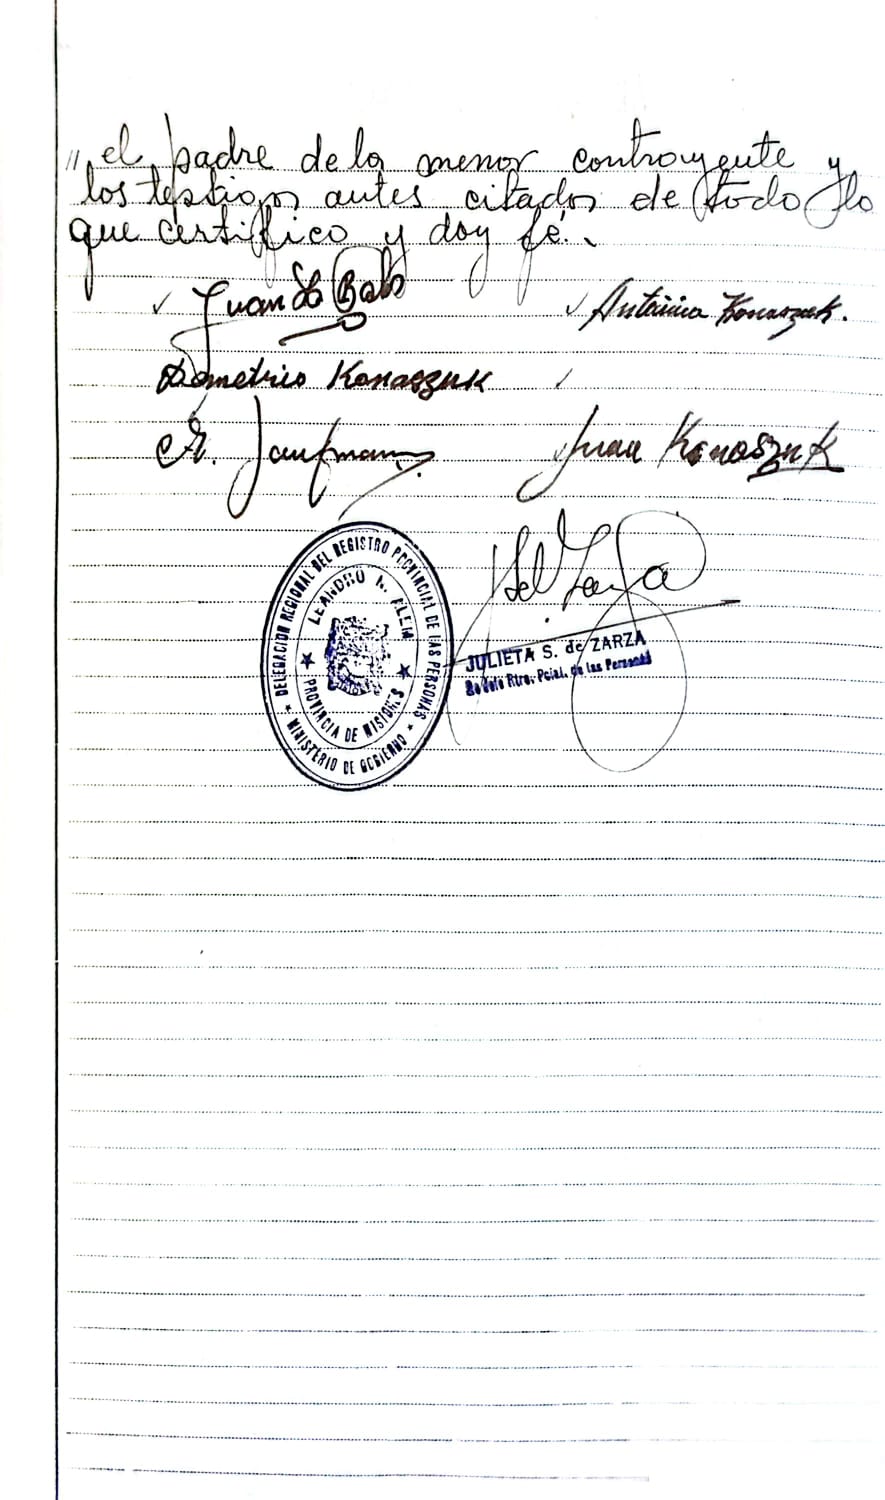 // el padre de la menor contrayente y
los testigos antes citados de todo lo
que certifico y doy fé.
Juan
Antonina Konaszuk.
Demetrio Konaszuk
Juan Konaszuk
DELEGACION REGIONAL DEL REGISTRO PROVINCIAL DE LAS PERSONAS
LEANDRO N. ALEM
PROVINCIA DE MISIONES
MINISTERIO DE GOBIERNO
JULIETA S. de ZARZA
Rtro. Pcial. de las Personas